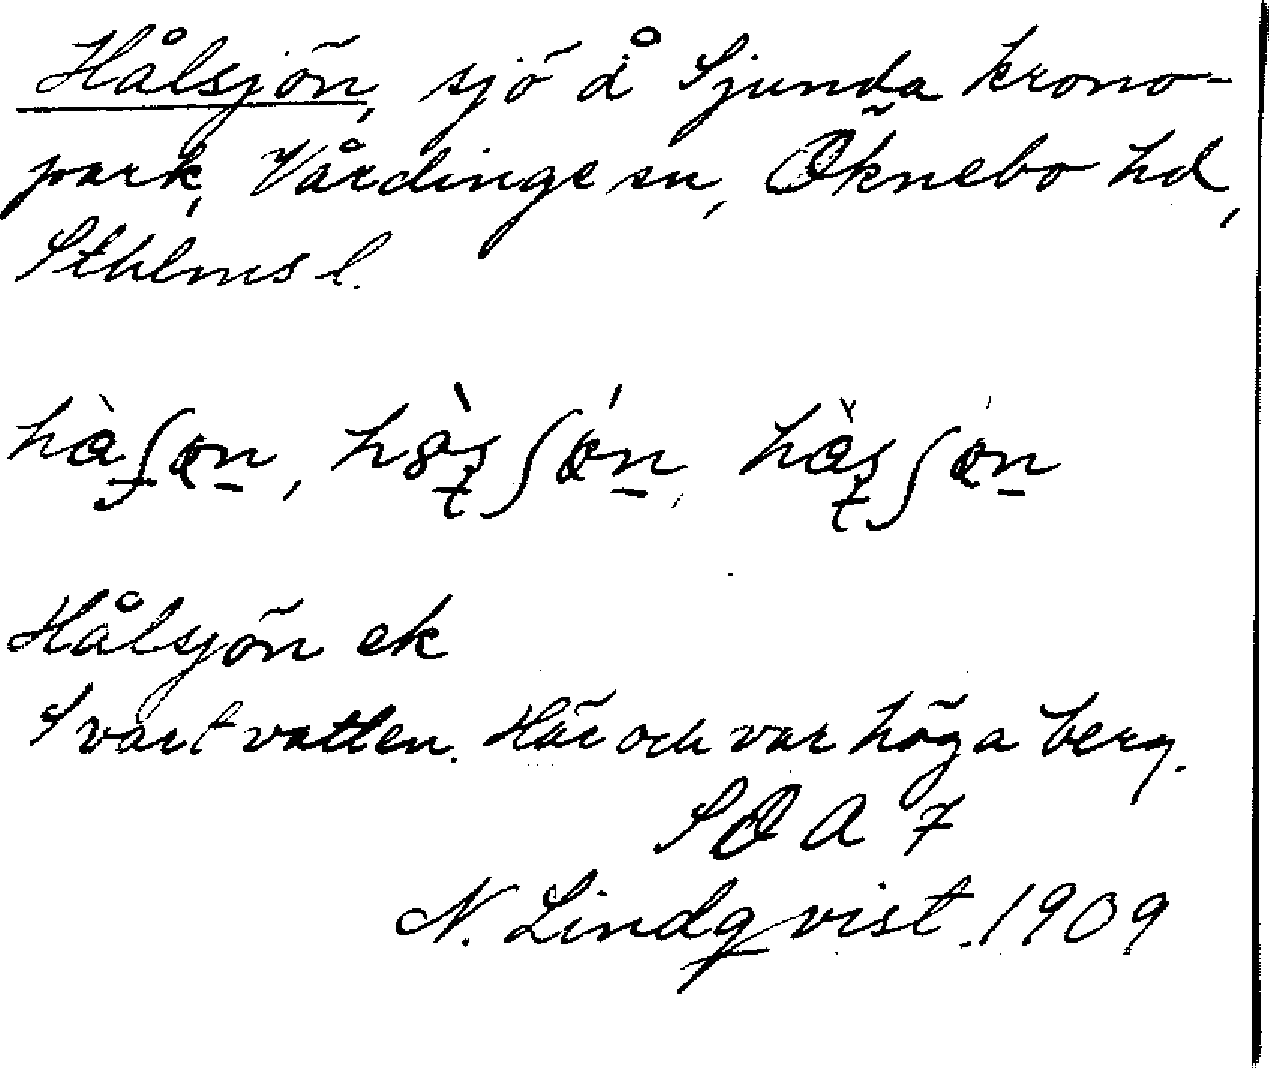 Hålsjön, sjö å Sjunda krono-
park, Vårdinge sn, Öknebo hd,
Sthlms l.
Hålsjön ek
Svart vatten. Här och var höga berg.
SOA 7
N. Lindqvist. 1909